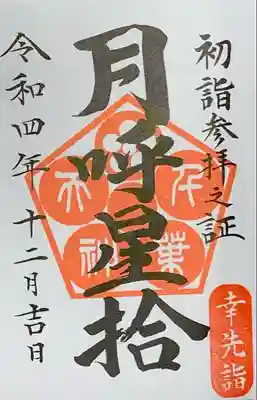 初詣参拝之証
月呼星拾
千葉天神
令和四年十二月吉日
幸先詣